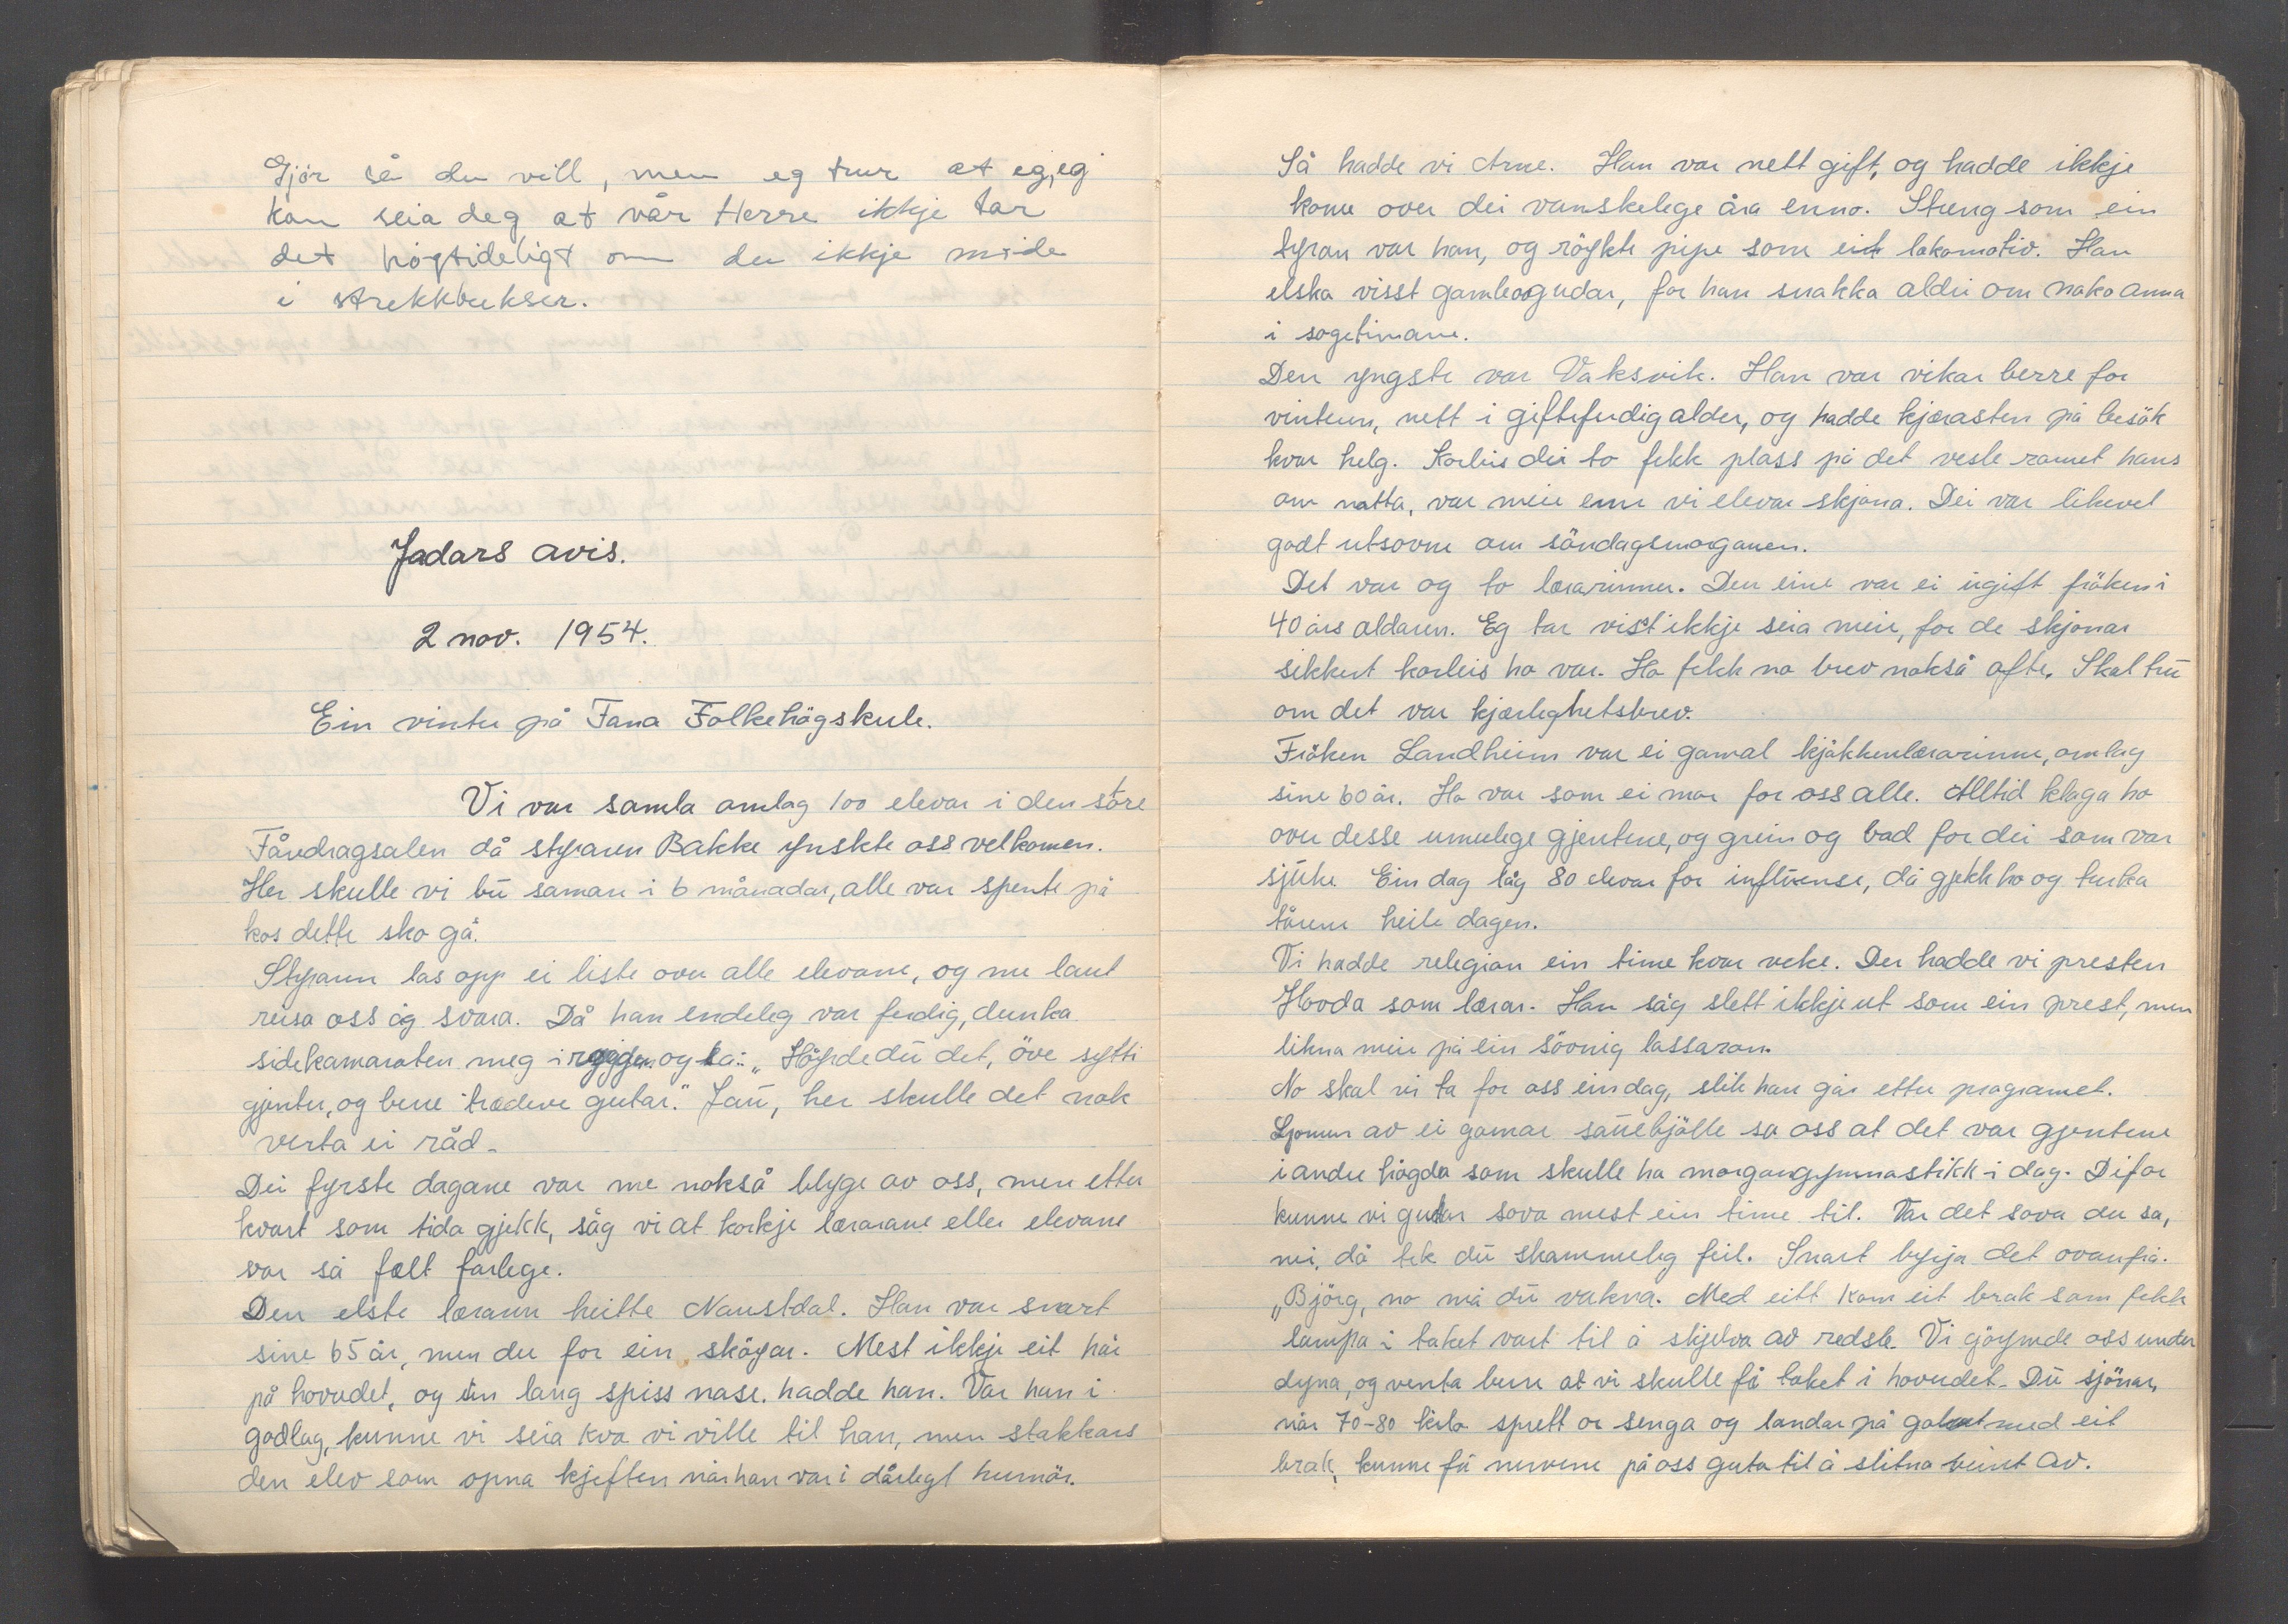 Gjør så du vill, men eg trur at eg, eg
kan seia deg at vår Herre ikkje tar
det högtideligt om du ikkje möde
i strekkbukser.
Jadars avis.
2 nov. 1954.
Ein vinter på Fana Folkehögskule.
Vi var samla omlag 100 elevar i den störe
Fåredragsalen då styraren Bakke ynskte oss velkomen.
Her skulle vi bu saman i 6 månadar, alle var spente på
kos dette sko gå.
Styraren las opp ei liste over alle elevane, og me laut
reisa oss og svara. Då han endeleg var ferdig, dunka
sidekamaraten meg i ryggen og sa: „Höyrde du det, öve sytti
gjenter, og bere tradeve gutar." Jau, her skulle det nok
verta ei råd.
Dei fyrste dagane var me nokså blyge av oss, men etter
kvart som tida gjekk, såg vi at korkje lærarane eller elevane
var så fælt farlege.
Den elste læraren heitte Naustdal. Han var snart
sine 65 år, men du for ein sköyar. Mest ikkje eit hår
på hovudet, og ein lang spiss nase hadde han. Var han i
godlag, kunne vi seia kva vi ville til han, men stakkars
den elev som opna kjeften når han var i dårlegt humör.
Så hadde vi Arne. Han var nett gift, og hadde ikkje
kome over dei vanskelege åra enno. Streng som ein
tyran var han, og röykte pipe som eit lokomotiv. Han
elska visst gamleogudar, for han snakka aldri om noko anna
i sogetimane.
Den yngste var Vaksvik. Han var vikar berre for
vinteren, nett i gifteferdig alder, og hadde kjærasten på besök
kvar helg. Korleis dei to fekk plass på det vesle romet hans
om natta, var meir enn vi elevar skjøna. Dei var likevel
godt utsovne om söndagsmorganen.
Det var og to lærarinner. Den eine var ei ugift fröken i
40 års aldaren. Eg tar vist ikkje seia meir, for de skjønar
sikkert korleis ho var. Ho fekk no brev nokså ofte. Skal tru
om det var kjærleghetsbrev.
Fröken Landheim var ei gamal kjökkenlærarinne, omlag
sine 60 år. Ho var som ei mor for oss alle. Alltid klaga ho
over desse umulege gjentene, og grein og bad for dei som var
sjuke. Ein dag låg 80 elevar for influense, då gjekk ho og turka
tårene heile dagen.
Vi hadde religion ein time kvar veke. Der hadde vi presten
Hovda som lærar. Han såg slett ikkje ut som ein prest, men
likna meir på ein sövnig lassaron.
No skal vi ta for oss ein dag, slik han går etter programet.
Ljomen av ei gamar sauebjölle sa oss at det var gjentene
i andre högda som skulle ha morgongymnastikk i dag. Difor
kunne vi gutar sova mest ein time til. Var det sova du sa,
nei, då tek du skammeleg feil. Snart byrja det ovanfrå.
„Björg, no må du vakna. Med eitt kom eit brak som fekk
lampa i taket vart til å skjelva av redsle. Vi gjöymde oss under
dyna, og venta bere at vi skulle få taket i hovudet. Du sjönar,
når 70-80 kilo sprett or senga og landar på golvet med eit
brak, kunne få nervene på oss gutar til å slitna beint av.